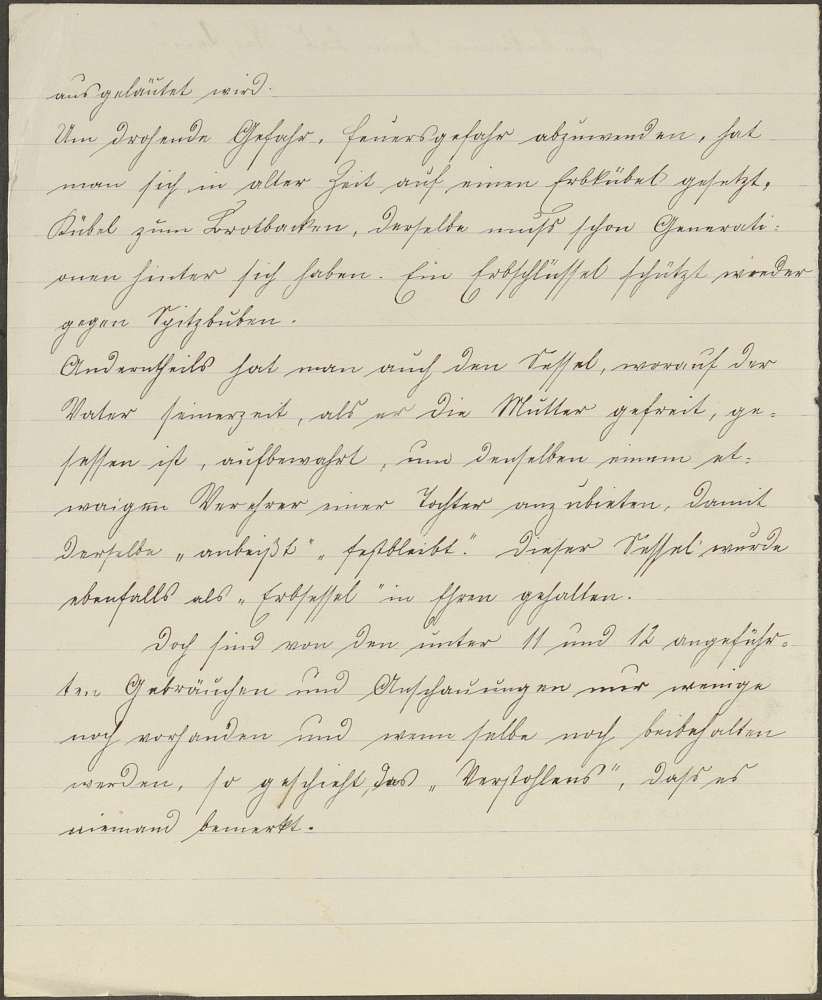 ausgeläutet wird.
Um drohende Gefahr, Feuersgefahr abzuwenden, hat
man sich in alter Zeit auf einen Erbkübel gesetzt,
Kübel zum Brotbacken, derselbe muß schon Generati-
onen hinter sich haben. Ein Erbschlüssel schützt wieder
gegen Spitzbuben.
Anderntheils hat man auch den Sessel, worauf der
Vater seinerzeit, als er die Mutter gefreit, ge-
sessen ist, aufbewahrt, um denselben einem et-
waigen Verehrer einer Tochter anzubieten, damit
derselbe „anbeißt" „festbleibt". Dieser Sessel wurde
ebenfalls als „Erbsessel" in Ehren gehalten.
Doch sind von den unter 11 und 12 angeführ-
ten Gebräuchen und Anschauungen nur wenige
noch vorhanden und wenn selbe noch beibehalten
werden, so geschieht das „Verstohlens", dass es
niemand bemerkt.